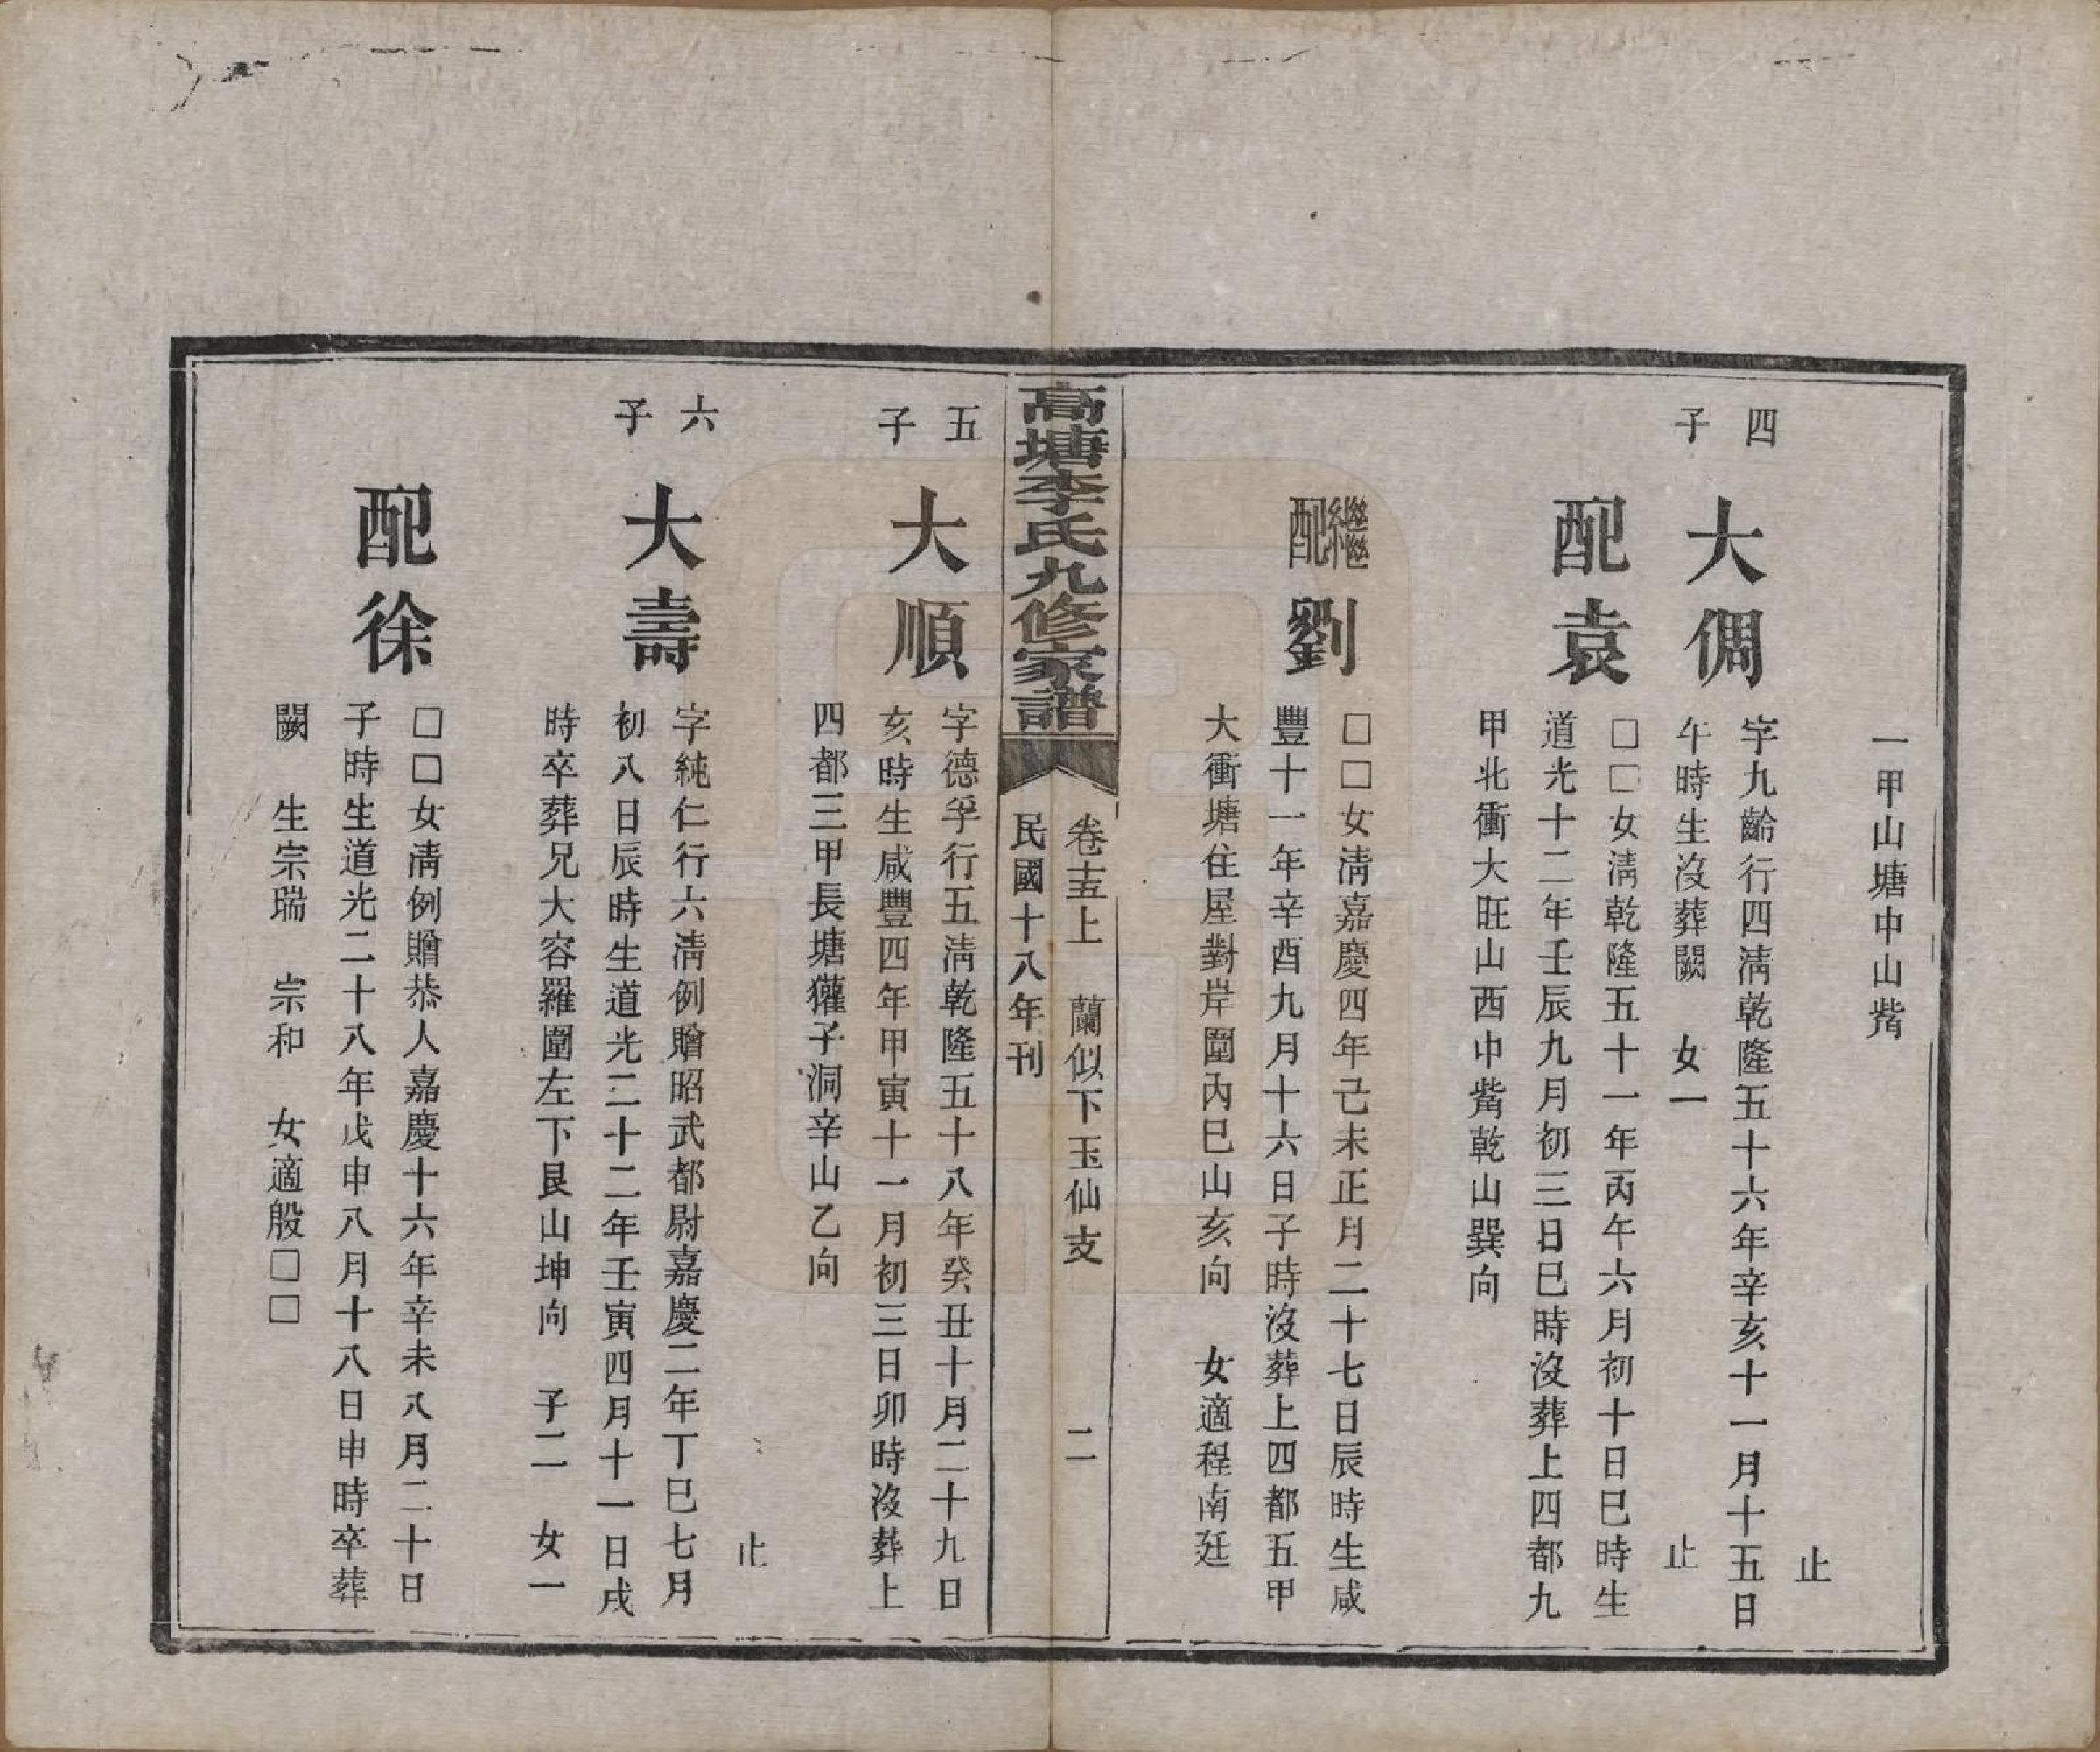 一甲山塘中山觜
止
四子
大倜
字九齡行四淸乾隆五十六年辛亥十一月十五日
午時生沒葬闕　女一
止
配袁
□□女淸乾隆五十一年丙午六月初十日巳時生
道光十二年壬辰九月初三日巳時沒葬上四都九
甲北衝大旺山西中觜乾山巽向
繼配劉
□□女淸嘉慶四年己未正月二十七日辰時生咸
豐十一年辛酉九月十六日子時沒葬上四都五甲
大衝塘住屋對岸圍內巳山亥向　女適程南廷
高塘李氏九修家譜
卷十五上　蘭似下玉仙支　二
民國十八年刊
五子
大順
字德孚行五淸乾隆五十八年癸丑十月二十九日
亥時生咸豐四年甲寅十一月初三日卯時沒葬上
四都三甲長塘獾子洞辛山乙向
止
六子
大壽
字純仁行六淸例贈昭武都尉嘉慶二年丁巳七月
初八日辰時生道光二十二年壬寅四月十一日戌
時卒葬兄大容羅圍左下艮山坤向　子二　女一
配徐
□□女淸例贈恭人嘉慶十六年辛未八月二十日
子時生道光二十八年戊申八月十八日申時卒葬
闕　生宗瑞　宗和　女適殷□□